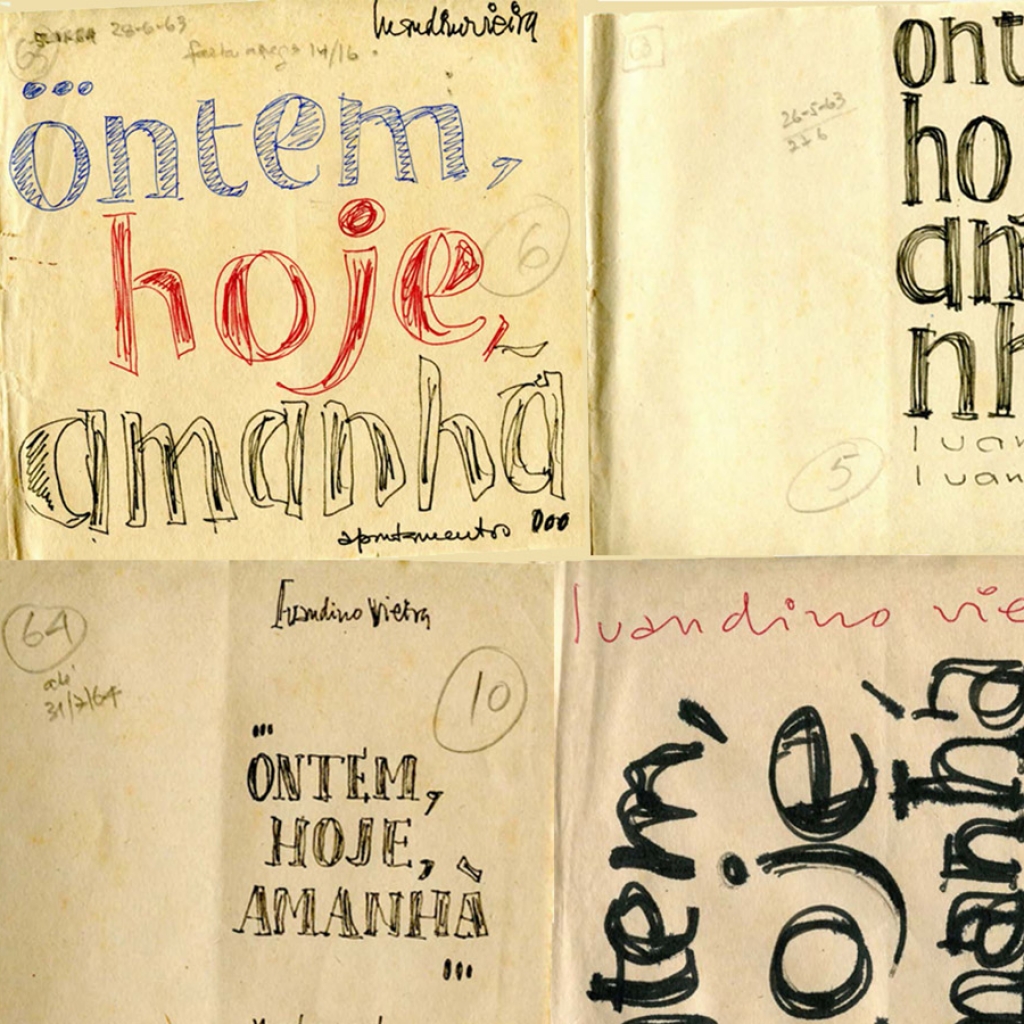 28-6-63
Luandinovieira
14/16
...
öntem,
hoje,
6
amanhã
apontamentos ...
26-5-63
ont
ho
am
nh
5
luan
luan
64
até
31/7/64
Luandino Vieira
10
...
ÖNTEM,
HOJE,
AMANHÃ
...
luandino vie
tem,
oje
manhã